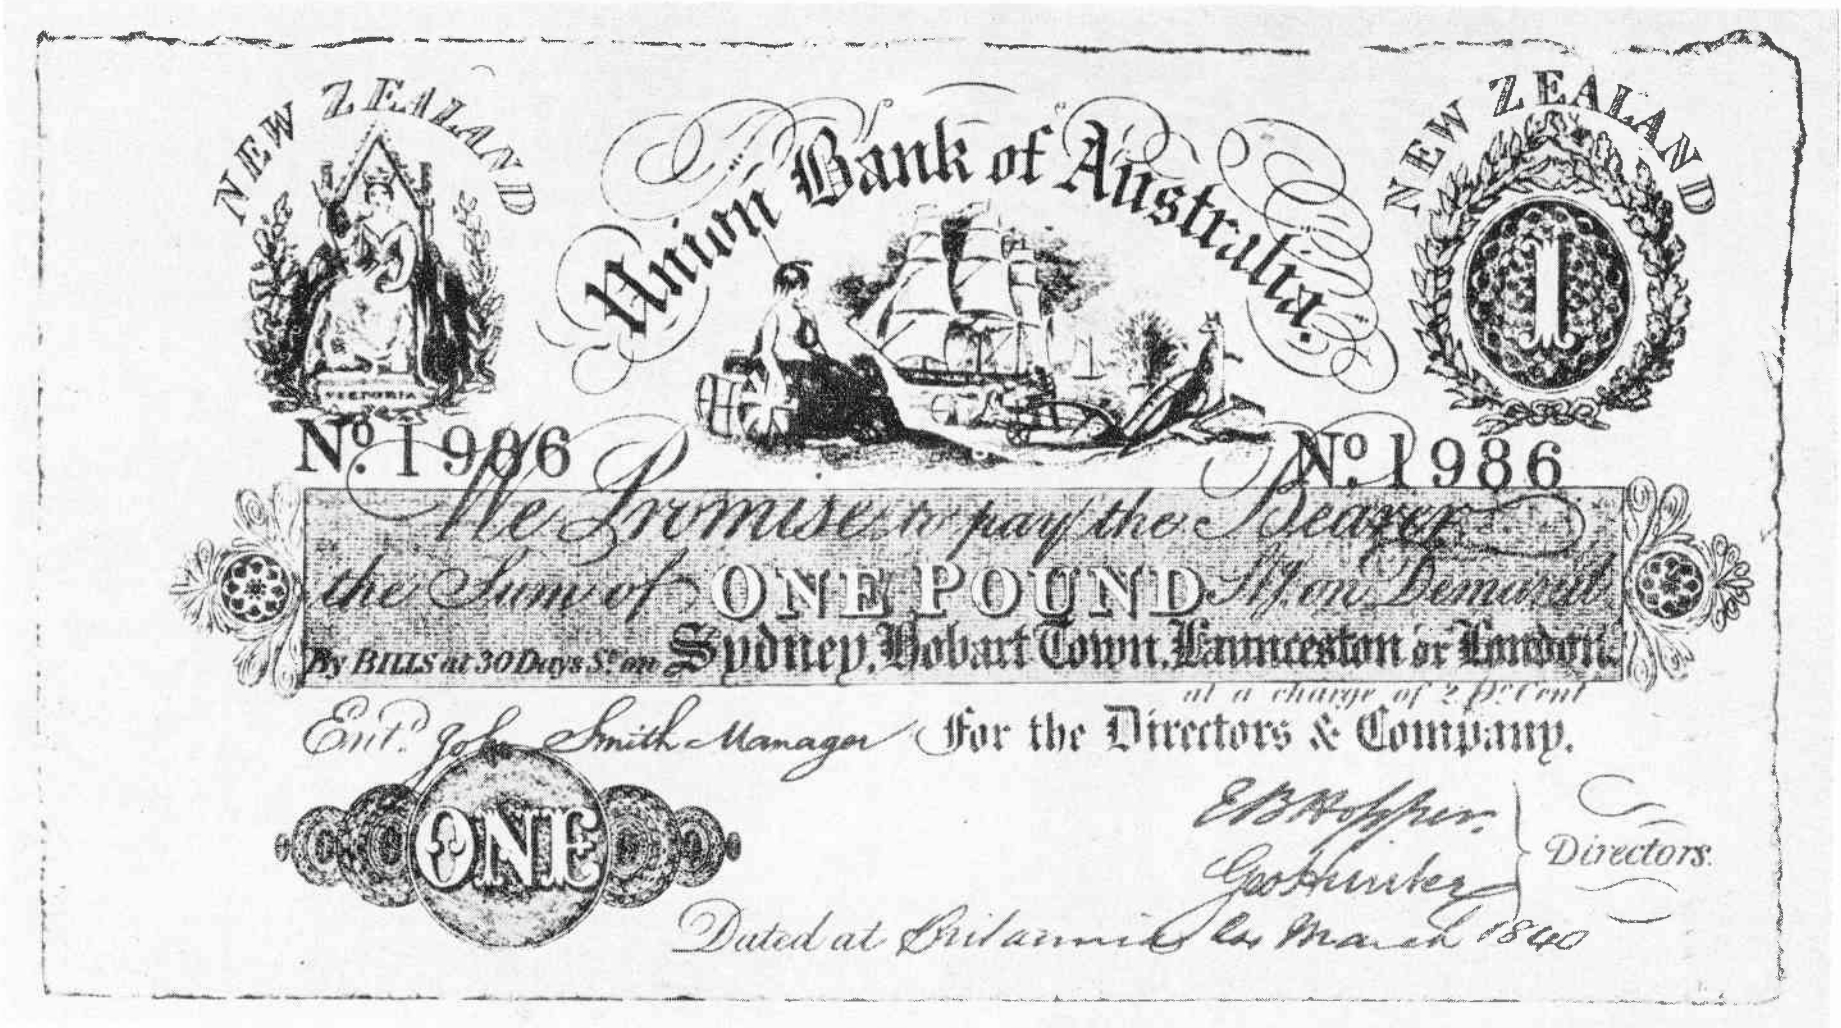 NEW ZEALAND
NEW ZEALAND
Union Bank of Australia.
1
VICTORIA
No. 1986
No. 1986
We Promise to pay the Bearer
the Sum of ONE POUND Stg. on Demand
By BILLS at 30 Days St. on Sydney, Hobart Town, Launceston or London.
at a charge of 2 Pr Cent
Entd. John Smith Manager For the Directors & Company.
ONE
Geo Hunter
Directors.
Dated at Britannia March 1840